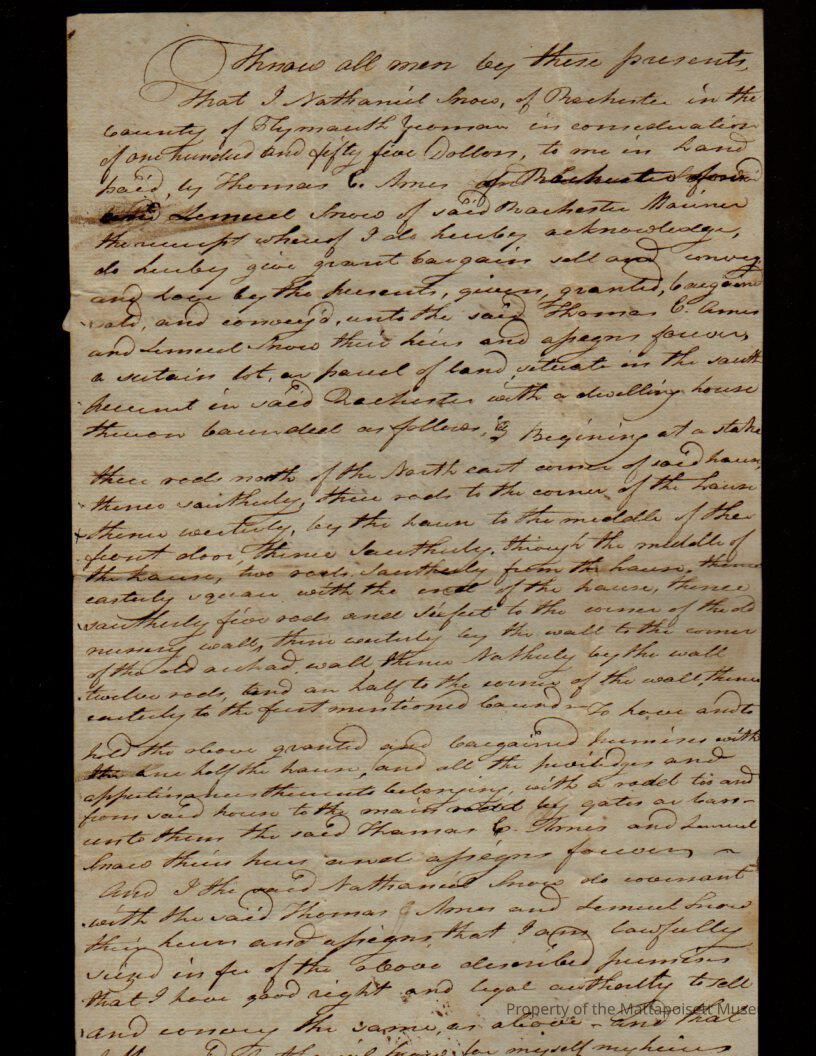 Know all men by these presents
that I Nathaniel Snow, of Rochester in the
County of Plymouth Yeoman in consideration
of one hundred and fifty five Dollars, to me in hand
paid, by Thomas C. Ames of Rochester
and Lemuel Snow of said Rochester Mariner
the receipt whereof I do hereby acknowledge,
do hereby give grant bargain sell and convey
and have by the presents, given, granted, bargained
sold, and convey'd, unto the said Thomas C. Ames
and Lemuel Snow their heirs and assigns forever,
a certain lot, or parcel of land situate in the south
precinct in said Rochester with a dwelling house
thereon bounded as follows, Begining at a stake
three rods north of the North east corner of said house,
thence southerly, three rods to the corner of the house
thence westerly, by the house to the middle of the
front door thence Southerly, through the middle of
the house, two rods Southerly from the house, thence
easterly square with the end of the house, thence
southerly five rods and six feet to the corner of the old
nursery wall, thence westerly by the wall to the corner
of the old orchad wall thence Notherly by the wall
twelve rods, and an half to the corner of the wall, thence
easterly to the first mentioned bound - To have and to
hold the above granted and bargained premises with
the one half the house, and all the priviledges and
appertinances thereunto belonging, with a rodd too and
from said house to the main rodd by gates or bars-
unto them the said Thomas C. Ames and Lemuel
Snow their heirs and assigns forever, ~
And I the said Nathaniel Snow do covenant
with the said Thomas Ames and Lemuel Snow
their heirs and assigns, that I am lawfully
seized in fee of the above described premises
that I have good right and legal authority to sell
Property of the Mattapoisett Muse
and convey the same, as above - and that
for myself my heirs